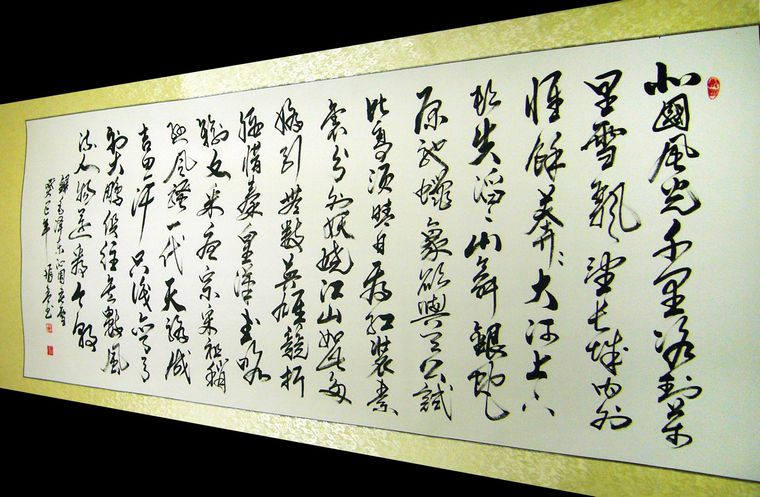 北國風光千里冰封萬
里雪飄望長城内外
惟餘莽莽大河上下
頓失滔滔山舞銀蛇
原馳蠟象欲與天公試
比高須晴日看紅裝素
裹分外妖嬈江山如此多
嬌引無數英雄競折
腰惜秦皇漢武略
輸文采唐宗宋祖稍
遜風騷一代天驕成
吉思汗只識彎弓
射大鵰俱往矣數風
流人物還看今朝
錄毛澤東沁園春雪
癸巳年 书